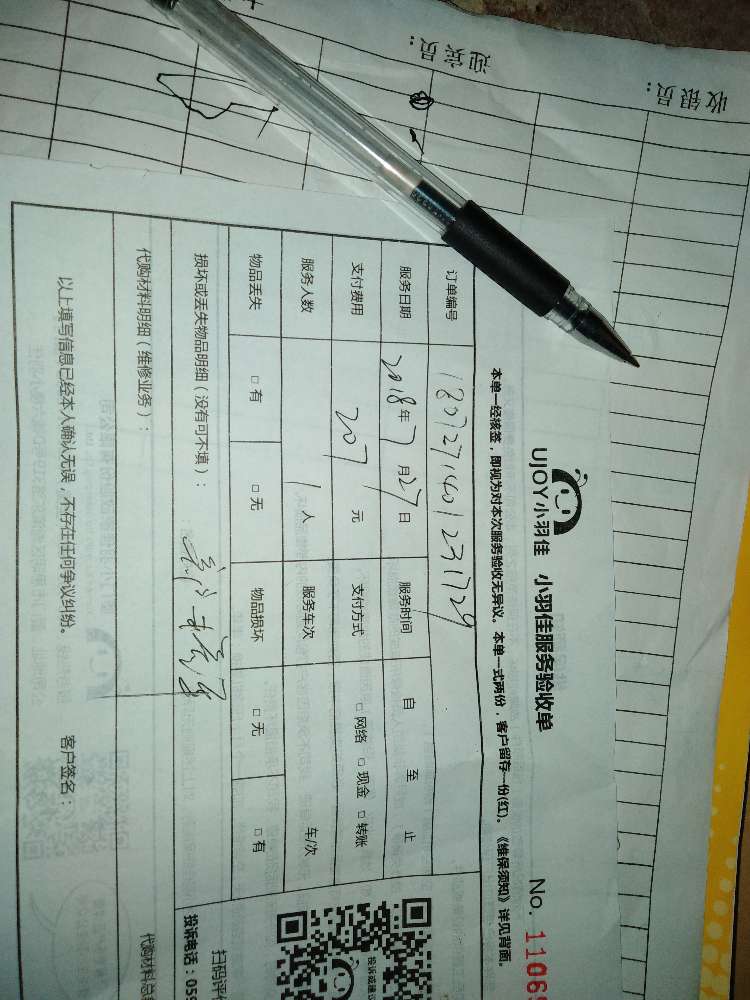 收银员：
迎宾员：
UJOY小羽佳 小羽佳服务验收单 No. 1106
本单一经核签，即视为对本次服务验收无异议。本单一式两份，客户留存一份(红)。《维保须知》详见背面。
订单编号 1807271401231729
服务日期 2018年7月27日 服务时间 自 至 止
支付费用 207 元 支付方式 □网络 □现金 □转账
服务人数 1人 服务车次 车/次
物品丢失 □有 □无 物品损坏 □无 □有
损坏或丢失物品明细（没有可不填）：
代购材料明细（维修业务）：
代购材料总
以上填写信息已经本人确认无误，不存在任何争议纠纷。 客户签名：
投诉或建议
扫码评
投诉电话：059